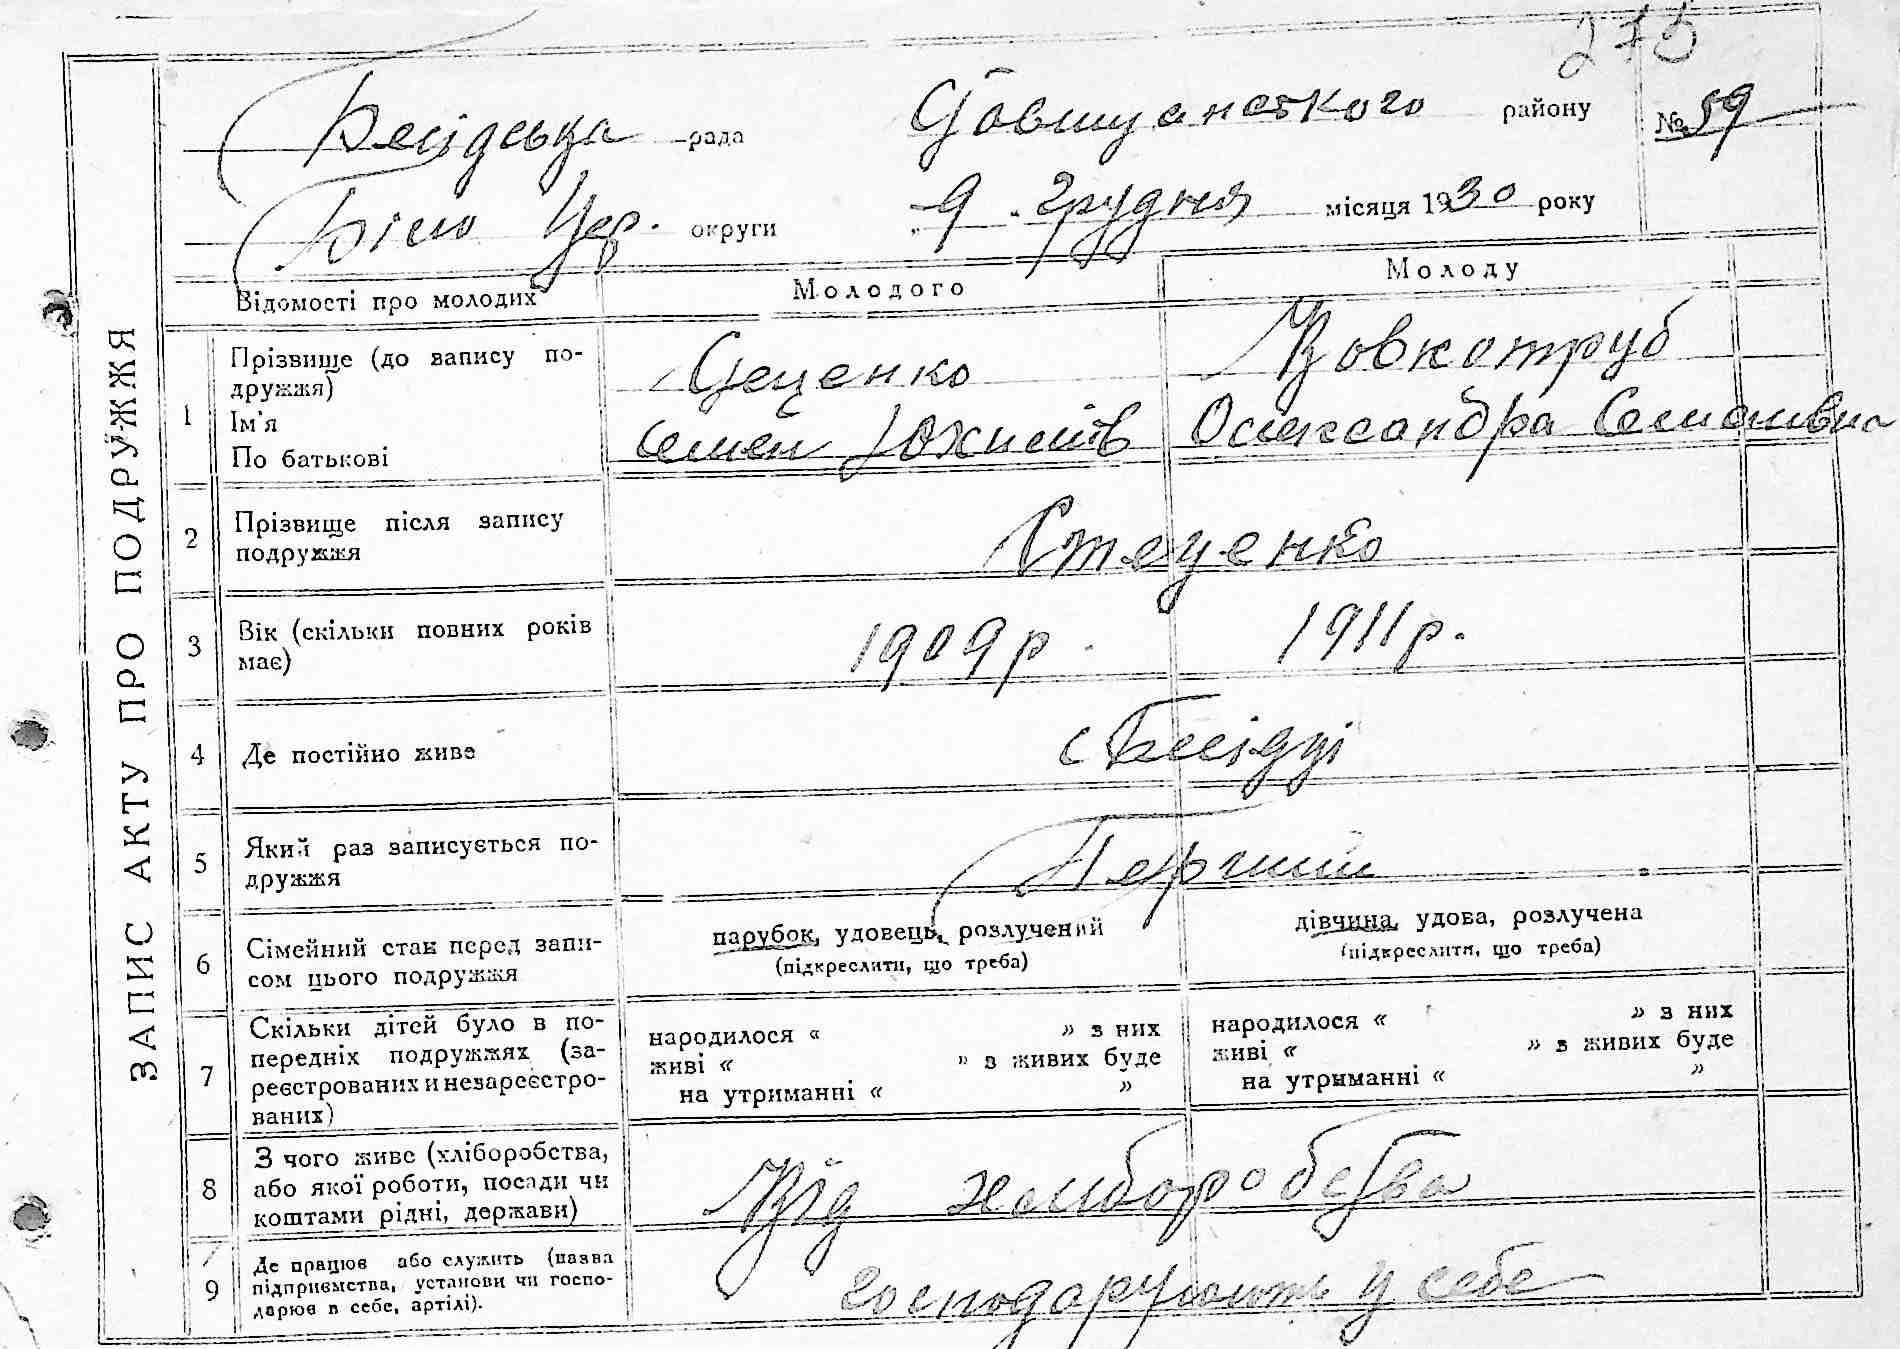 275
Бесідська рада Ставищанського району № 59
Біло Цер. округи „ 9 „ Грудня місяця 1930 року
Відомості про молодих Молодого Молоду
ЗАПИС АКТУ ПРО ПОДРУЖЖЯ
1 Прізвище (до запису по-
дружжя)
Ім'я
По батькові
Сеценко Вовкотруб
Семен Юхимів Олександра Семенівна
2 Прізвище після запису
подружжя
Стеценко
3 Вік (скільки повних років
має)
1909р. 1911р.
4 Де постійно живе с Бесідці
5 Який раз записується по-
дружжя
Перший
6 Сімейний стан перед запи-
сом цього подружжя
парубок, удовець, розлучений дівчина, удова, розлучена
(підкреслити, що треба) (підкреслити, що треба)
7 Скільки дітей було в по-
передніх подружжях (за-
реєстрованих и незареєстро-
ваних)
народилося “ ” з них народилося “ ” з них
живі “ ” з живих буде живі “ ” з живих буде
на утриманні “ ” на утриманні “ ”
8 З чого живе (хліборобства,
або якої роботи, посади чи
коштами рідні, держави)
Від хліборобства
9 Де працює або служить (назва
підприємства, установи чи госпо-
дарює в себе, артілі).
господарюють у себе